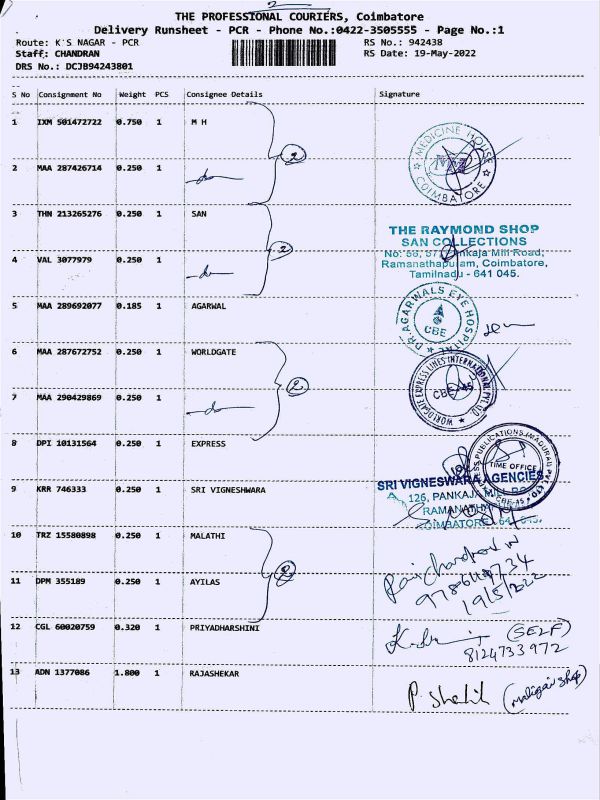 2
THE PROFESSIONAL COURIERS, Coimbatore
Delivery Runsheet - PCR - Phone No.:0422-3505555 - Page No.:1
Route: K'S NAGAR - PCR
RS No.: 942438
Staff: CHANDRAN
RS Date: 19-May-2022
DRS No.: DCJB94243801
S No Consignment No Weight PCS Consignee Details Signature
1 IXM 501472722 0.750 1 M H
MEDICINE HOUSE
COIMBATORE
2
2 MAA 287426714 0.250 1
3 THN 213265276 0.250 1 SAN
THE RAYMOND SHOP
SAN COLLECTIONS
Mill Road,
Ramanathapuram, Coimbatore,
Tamilnadu - 641 045.
2
4 VAL 3077979 0.250 1
5 MAA 289692077 0.185 1 AGARWAL
DR. AGARWALS EYE HOSPITAL
CBE
6 MAA 287672752 0.250 1 WORLDGATE
WORLDGATE EXPRESS LINES INTERNATIONAL PVT. LTD.
CBE-45
2
7 MAA 290429869 0.250 1
8 DPI 10131564 0.250 1 EXPRESS
PUBLICATIONS (MADURAI) PVT. LTD.
TIME OFFICE
CBE-45
9 KRR 746333 0.250 1 SRI VIGNESHWARA
SRI VIGNESWARA AGENCIES
126, PANKAJA MILL
COIMBATORE
10 TRZ 15580898 0.250 1 MALATHI
2
11 DPM 355189 0.250 1 AYILAS
19/5/2022
12 CGL 60020759 0.320 1 PRIYADHARSHINI
(SELF)
8124733972
13 ADN 1377086 1.800 1 RAJASHEKAR
(maligai shop)